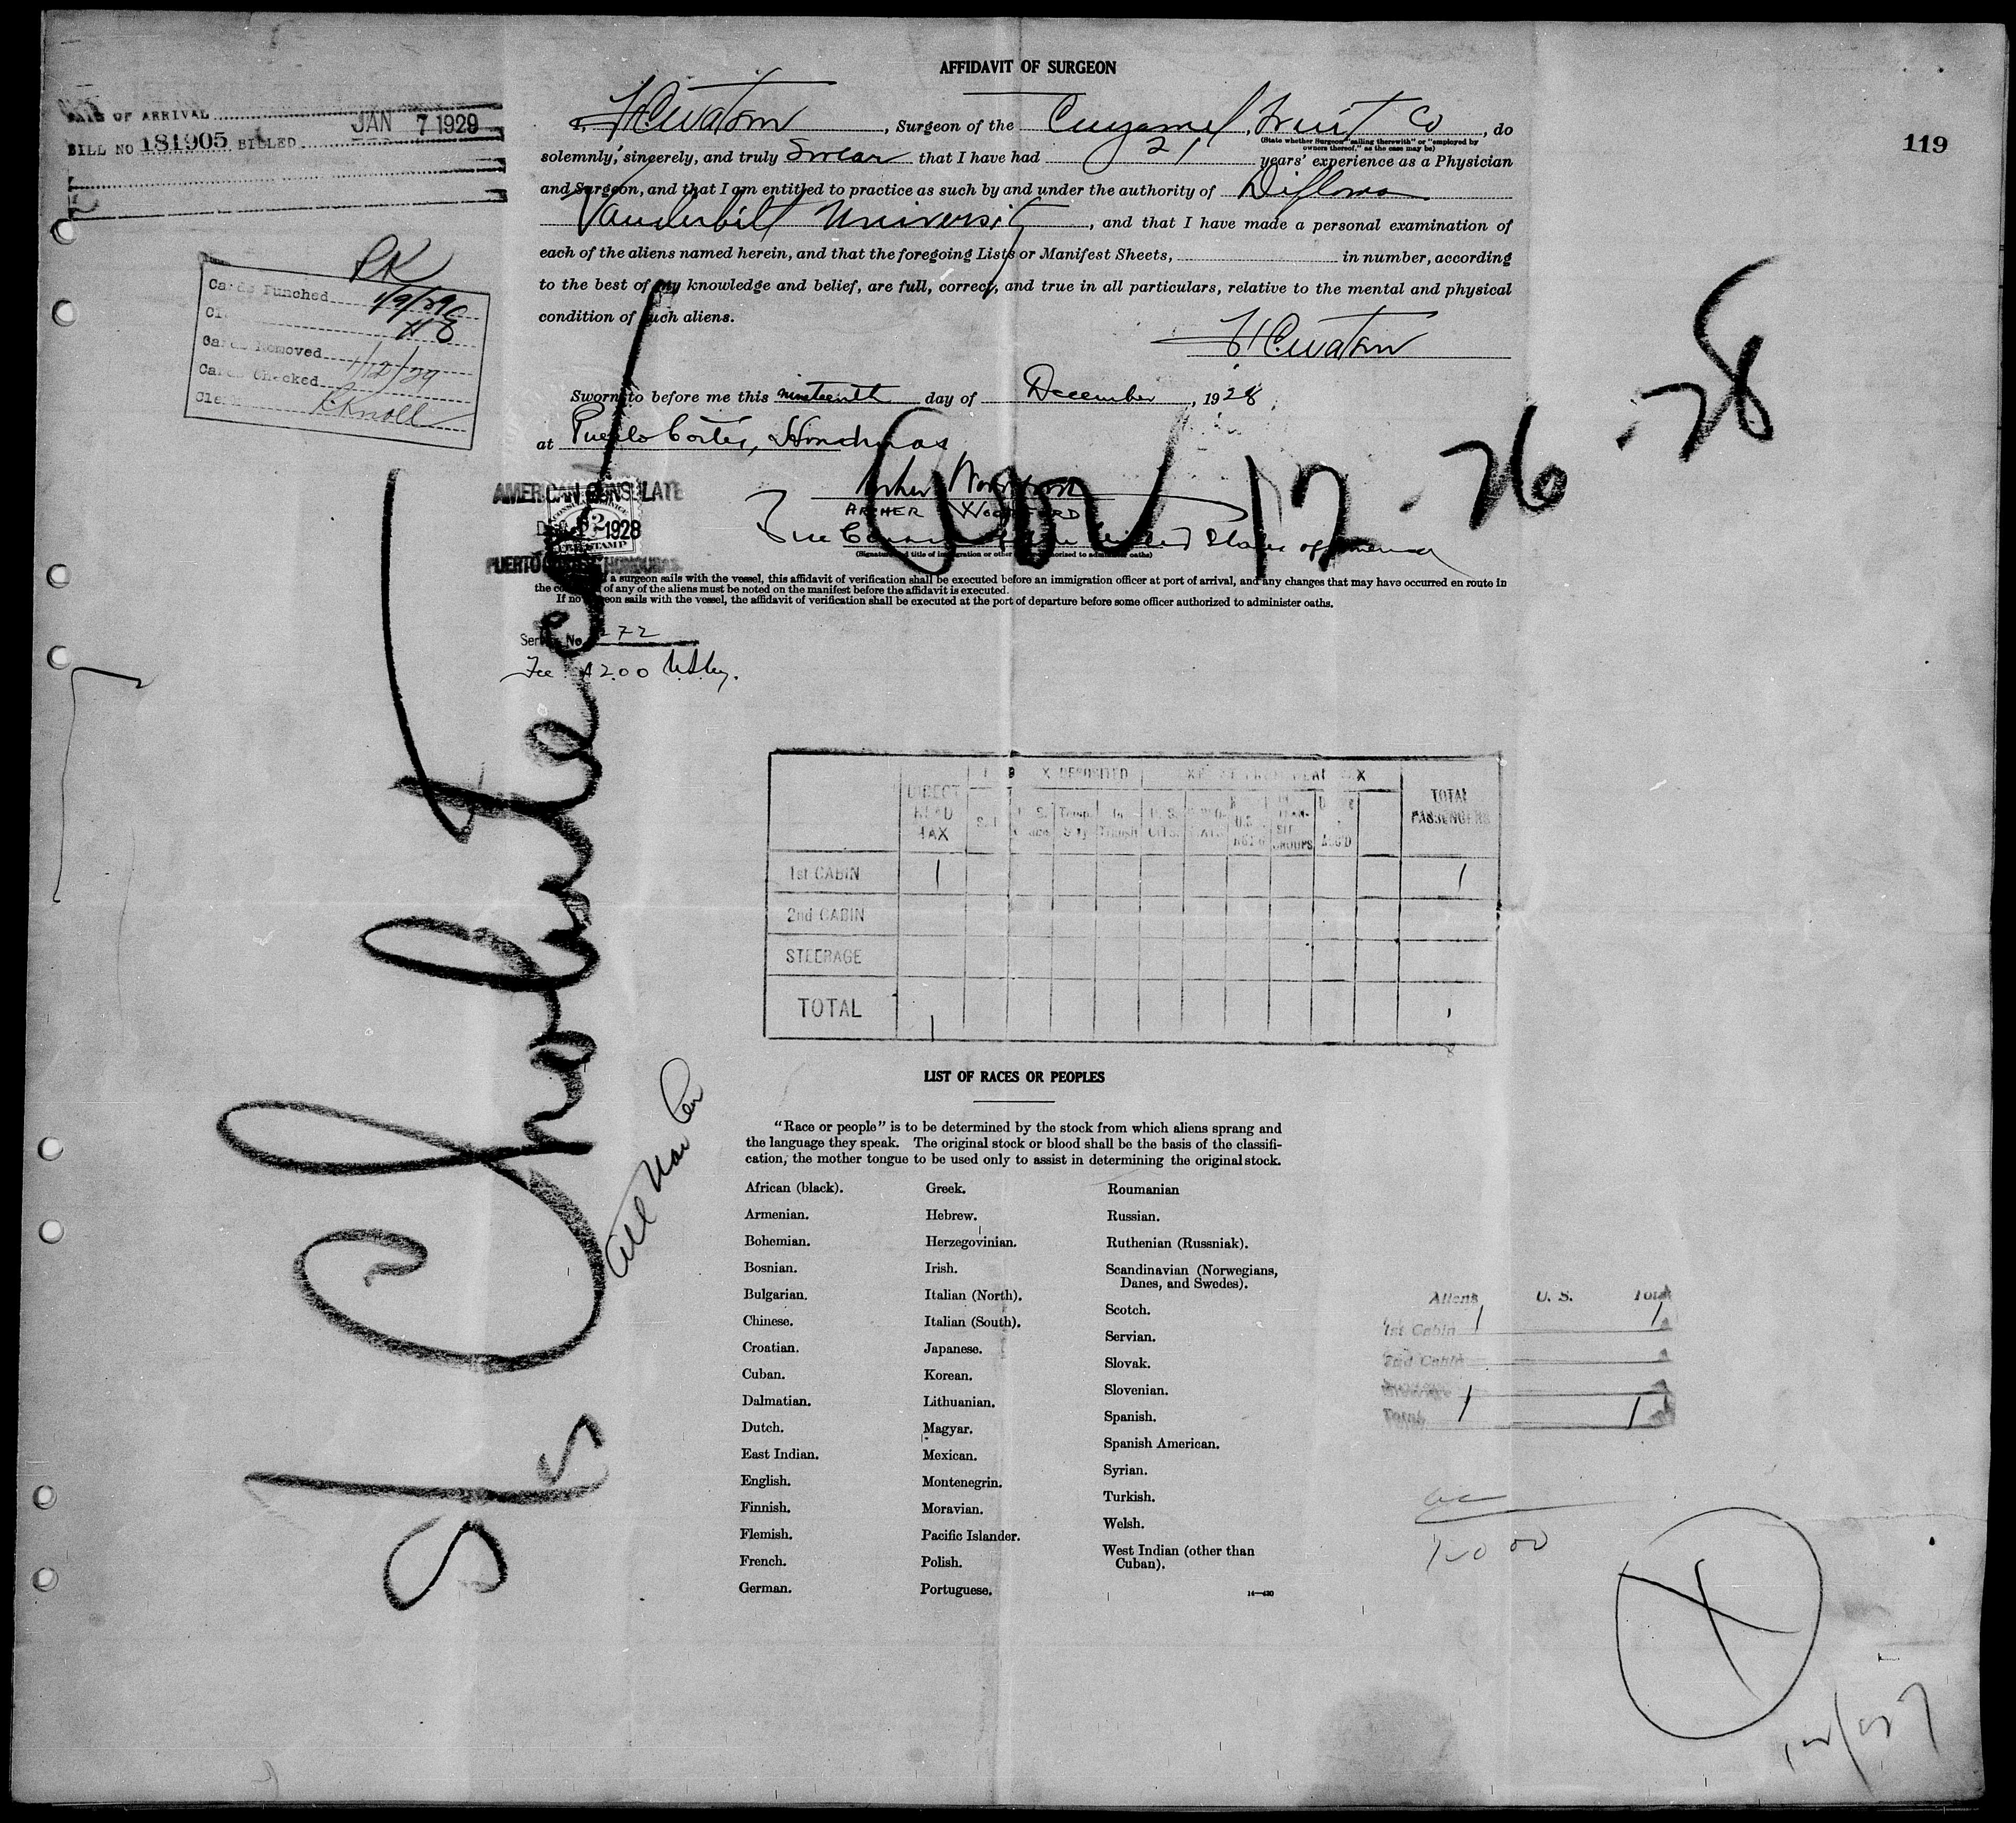 AFFIDAVIT OF SURGEON
OF ARRIVAL
BILL NO 181905 BILLED JAN 7 1929
119
I, , Surgeon of the Cuyamel Fruit Co, do
(State whether Surgeon "sailing therewith" or "employed by owners thereof," as the case may be)
solemnly, sincerely, and truly Swear that I have had 21 years' experience as a Physician
and Surgeon, and that I am entitled to practice as such by and under the authority of Diploma
Vanderbilt University, and that I have made a personal examination of
each of the aliens named herein, and that the foregoing Lists or Manifest Sheets, in number, according
to the best of my knowledge and belief, are full, correct, and true in all particulars, relative to the mental and physical
condition of such aliens.
RK
Cards Punched 1/9/29
Cards Removed 1/12/29
Cards Checked
Clerk RKnoll
Sworn to before me this nineteenth day of December, 1928
at Puerto Cortés, Honduras
ARCHER WOODFORD
Vice Consul of the United States of America
(Signature and title of immigration or other officer authorized to administer oaths)
AMERICAN CONSULATE
1928
PUERTO CORTES, HONDURAS
a surgeon sails with the vessel, this affidavit of verification shall be executed before an immigration officer at port of arrival, and any changes that may have occurred en route in
the condition of any of the aliens must be noted on the manifest before the affidavit is executed.
If no surgeon sails with the vessel, the affidavit of verification shall be executed at the port of departure before some officer authorized to administer oaths.
Service No. 272
Fee $2.00
12-26-28
DIRECT HEAD TAX
DEPOSITED
TOTAL PASSENGERS
1st CABIN 1 1
2nd CABIN
STEERAGE
TOTAL 1 1
LIST OF RACES OR PEOPLES
"Race or people" is to be determined by the stock from which aliens sprang and
the language they speak. The original stock or blood shall be the basis of the classifi-
cation, the mother tongue to be used only to assist in determining the original stock.
African (black).
Armenian.
Bohemian.
Bosnian.
Bulgarian.
Chinese.
Croatian.
Cuban.
Dalmatian.
Dutch.
East Indian.
English.
Finnish.
Flemish.
French.
German.
Greek.
Hebrew.
Herzegovinian.
Irish.
Italian (North).
Italian (South).
Japanese.
Korean.
Lithuanian.
Magyar.
Mexican.
Montenegrin.
Moravian.
Pacific Islander.
Polish.
Portuguese.
Roumanian
Russian.
Ruthenian (Russniak).
Scandinavian (Norwegians,
Danes, and Swedes).
Scotch.
Servian.
Slovak.
Slovenian.
Spanish.
Spanish American.
Syrian.
Turkish.
Welsh.
West Indian (other than
Cuban).
14—430
Aliens U. S. Total
1st Cabin 1 1
2nd Cabin
Total 1 1